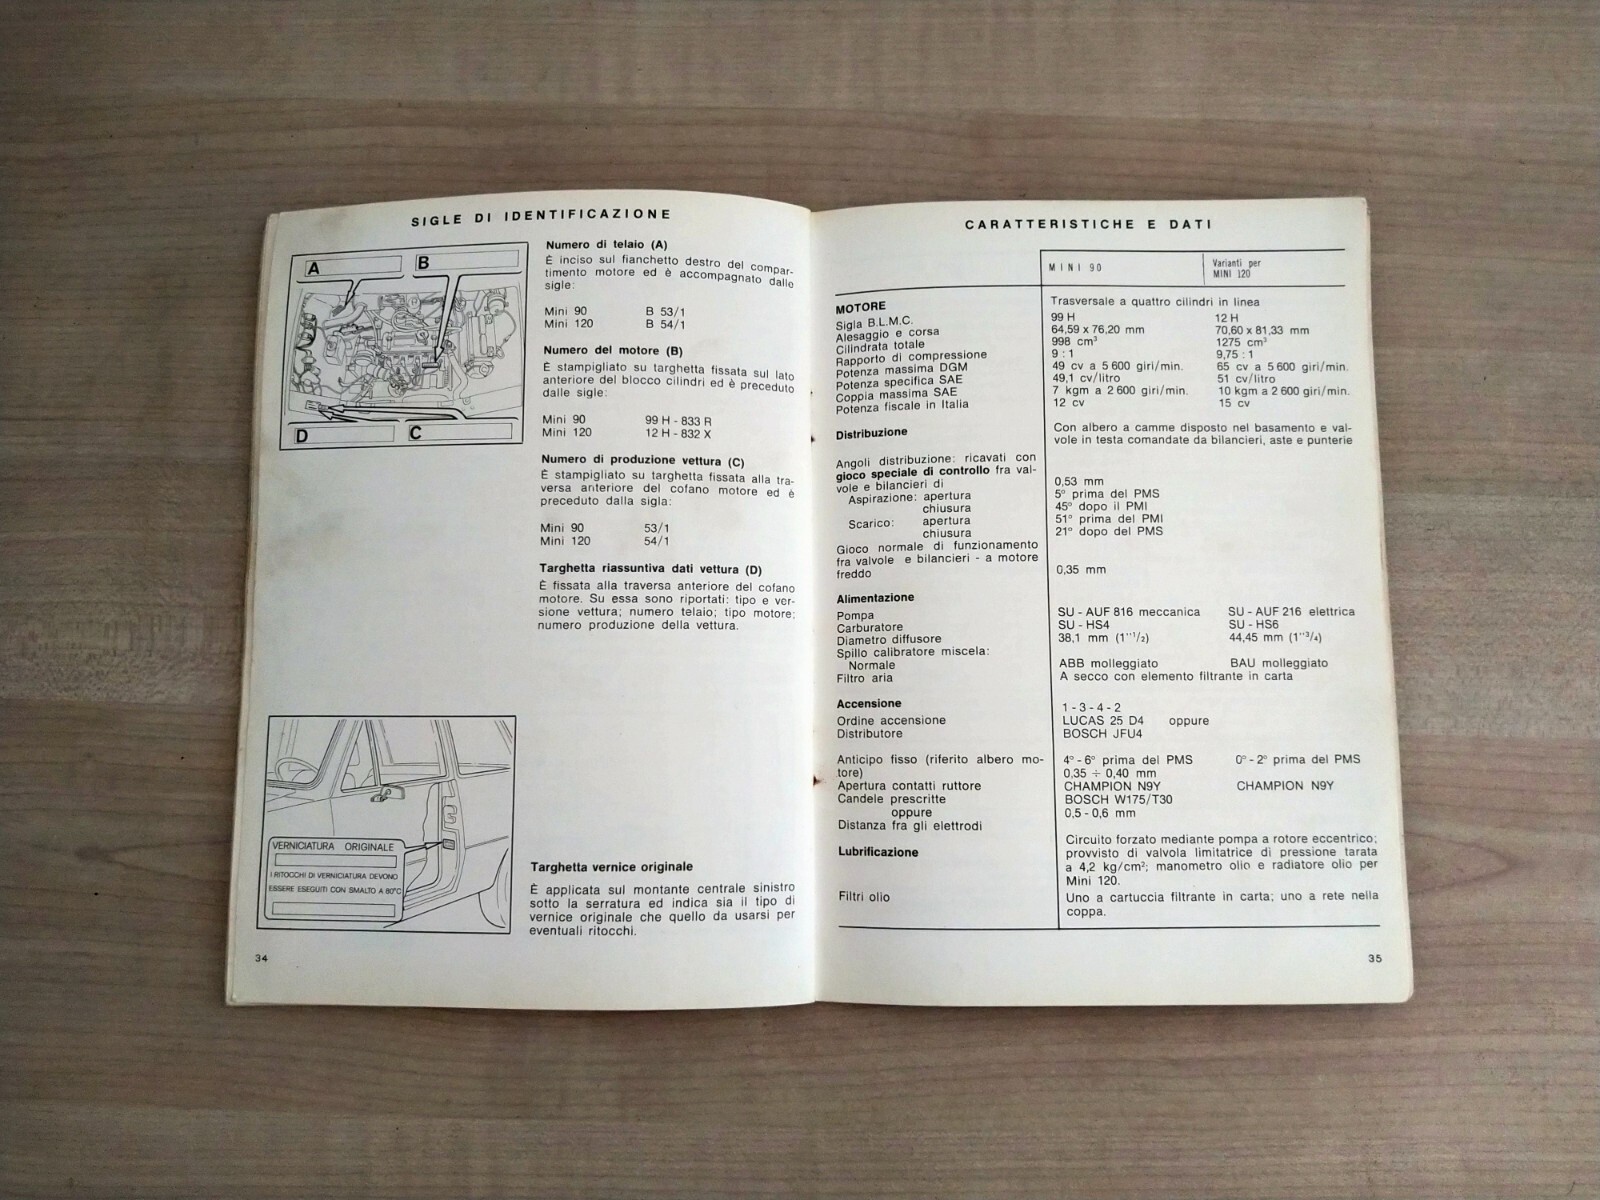 SIGLE DI IDENTIFICAZIONE
A
B
D
C
Numero di telaio (A)
È inciso sul fianchetto destro del compar-
timento motore ed è accompagnato dalle
sigle:
Mini 90 B 53/1
Mini 120 B 54/1
Numero del motore (B)
È stampigliato su targhetta fissata sul lato
anteriore del blocco cilindri ed è preceduto
dalle sigle:
Mini 90 99 H - 833 R
Mini 120 12 H - 832 X
Numero di produzione vettura (C)
È stampigliato su targhetta fissata alla tra-
versa anteriore del cofano motore ed è
preceduto dalla sigla:
Mini 90 53/1
Mini 120 54/1
Targhetta riassuntiva dati vettura (D)
È fissata alla traversa anteriore del cofano
motore. Su essa sono riportati: tipo e ver-
sione vettura; numero telaio; tipo motore;
numero produzione della vettura.
VERNICIATURA ORIGINALE
I RITOCCHI DI VERNICIATURA DEVONO
ESSERE ESEGUITI CON SMALTO A 80°C
Targhetta vernice originale
È applicata sul montante centrale sinistro
sotto la serratura ed indica sia il tipo di
vernice originale che quello da usarsi per
eventuali ritocchi.
34
CARATTERISTICHE E DATI
MINI 90 Varianti per
MINI 120
MOTORE Trasversale a quattro cilindri in linea
Sigla B.L.M.C. 99 H 12 H
Alesaggio e corsa 64,59 x 76,20 mm 70,60 x 81,33 mm
Cilindrata totale 998 cm³ 1275 cm³
Rapporto di compressione 9 : 1 9,75 : 1
Potenza massima DGM 49 cv a 5 600 giri/min. 65 cv a 5 600 giri/min.
Potenza specifica SAE 49,1 cv/litro 51 cv/litro
Coppia massima SAE 7 kgm a 2 600 giri/min. 10 kgm a 2 600 giri/min.
Potenza fiscale in Italia 12 cv 15 cv
Distribuzione Con albero a camme disposto nel basamento e val-
vole in testa comandate da bilancieri, aste e punterie
Angoli distribuzione: ricavati con
gioco speciale di controllo fra val-
vole e bilancieri di 0,53 mm
Aspirazione: apertura 5° prima del PMS
chiusura 45° dopo il PMI
Scarico: apertura 51° prima del PMI
chiusura 21° dopo del PMS
Gioco normale di funzionamento
fra valvole e bilancieri - a motore
freddo 0,35 mm
Alimentazione
Pompa SU - AUF 816 meccanica SU - AUF 216 elettrica
Carburatore SU - HS4 SU - HS6
Diametro diffusore 38,1 mm (1''1/2) 44,45 mm (1''3/4)
Spillo calibratore miscela:
Normale ABB molleggiato BAU molleggiato
Filtro aria A secco con elemento filtrante in carta
Accensione
Ordine accensione 1 - 3 - 4 - 2
Distributore LUCAS 25 D4 oppure
BOSCH JFU4
Anticipo fisso (riferito albero mo- 4° - 6° prima del PMS 0° - 2° prima del PMS
tore) 0,35 ÷ 0,40 mm
Apertura contatti ruttore CHAMPION N9Y CHAMPION N9Y
Candele prescritte BOSCH W175/T30
oppure 0,5 - 0,6 mm
Distanza fra gli elettrodi
Lubrificazione Circuito forzato mediante pompa a rotore eccentrico;
provvisto di valvola limitatrice di pressione tarata
a 4,2 kg/cm²; manometro olio e radiatore olio per
Mini 120.
Filtri olio Uno a cartuccia filtrante in carta; uno a rete nella
coppa.
35